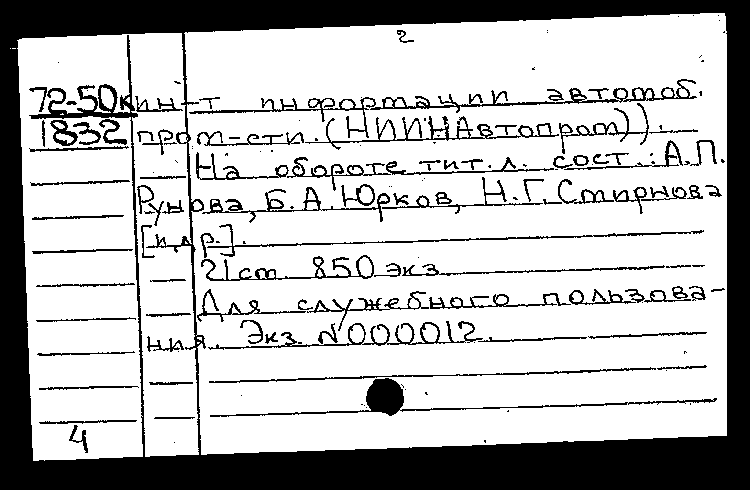 2
72-50к ин-т информации автомоб.
1832 пром-сти. (НИИНАвтопром)).
На обороте тит. л. сост.: А.П.
Рунова, Б.А. Юрков, Н.Г. Смирнова
[и др.].
21 ст. 850 экз.
Для служебного пользова-
ния. Экз. №000012.
4